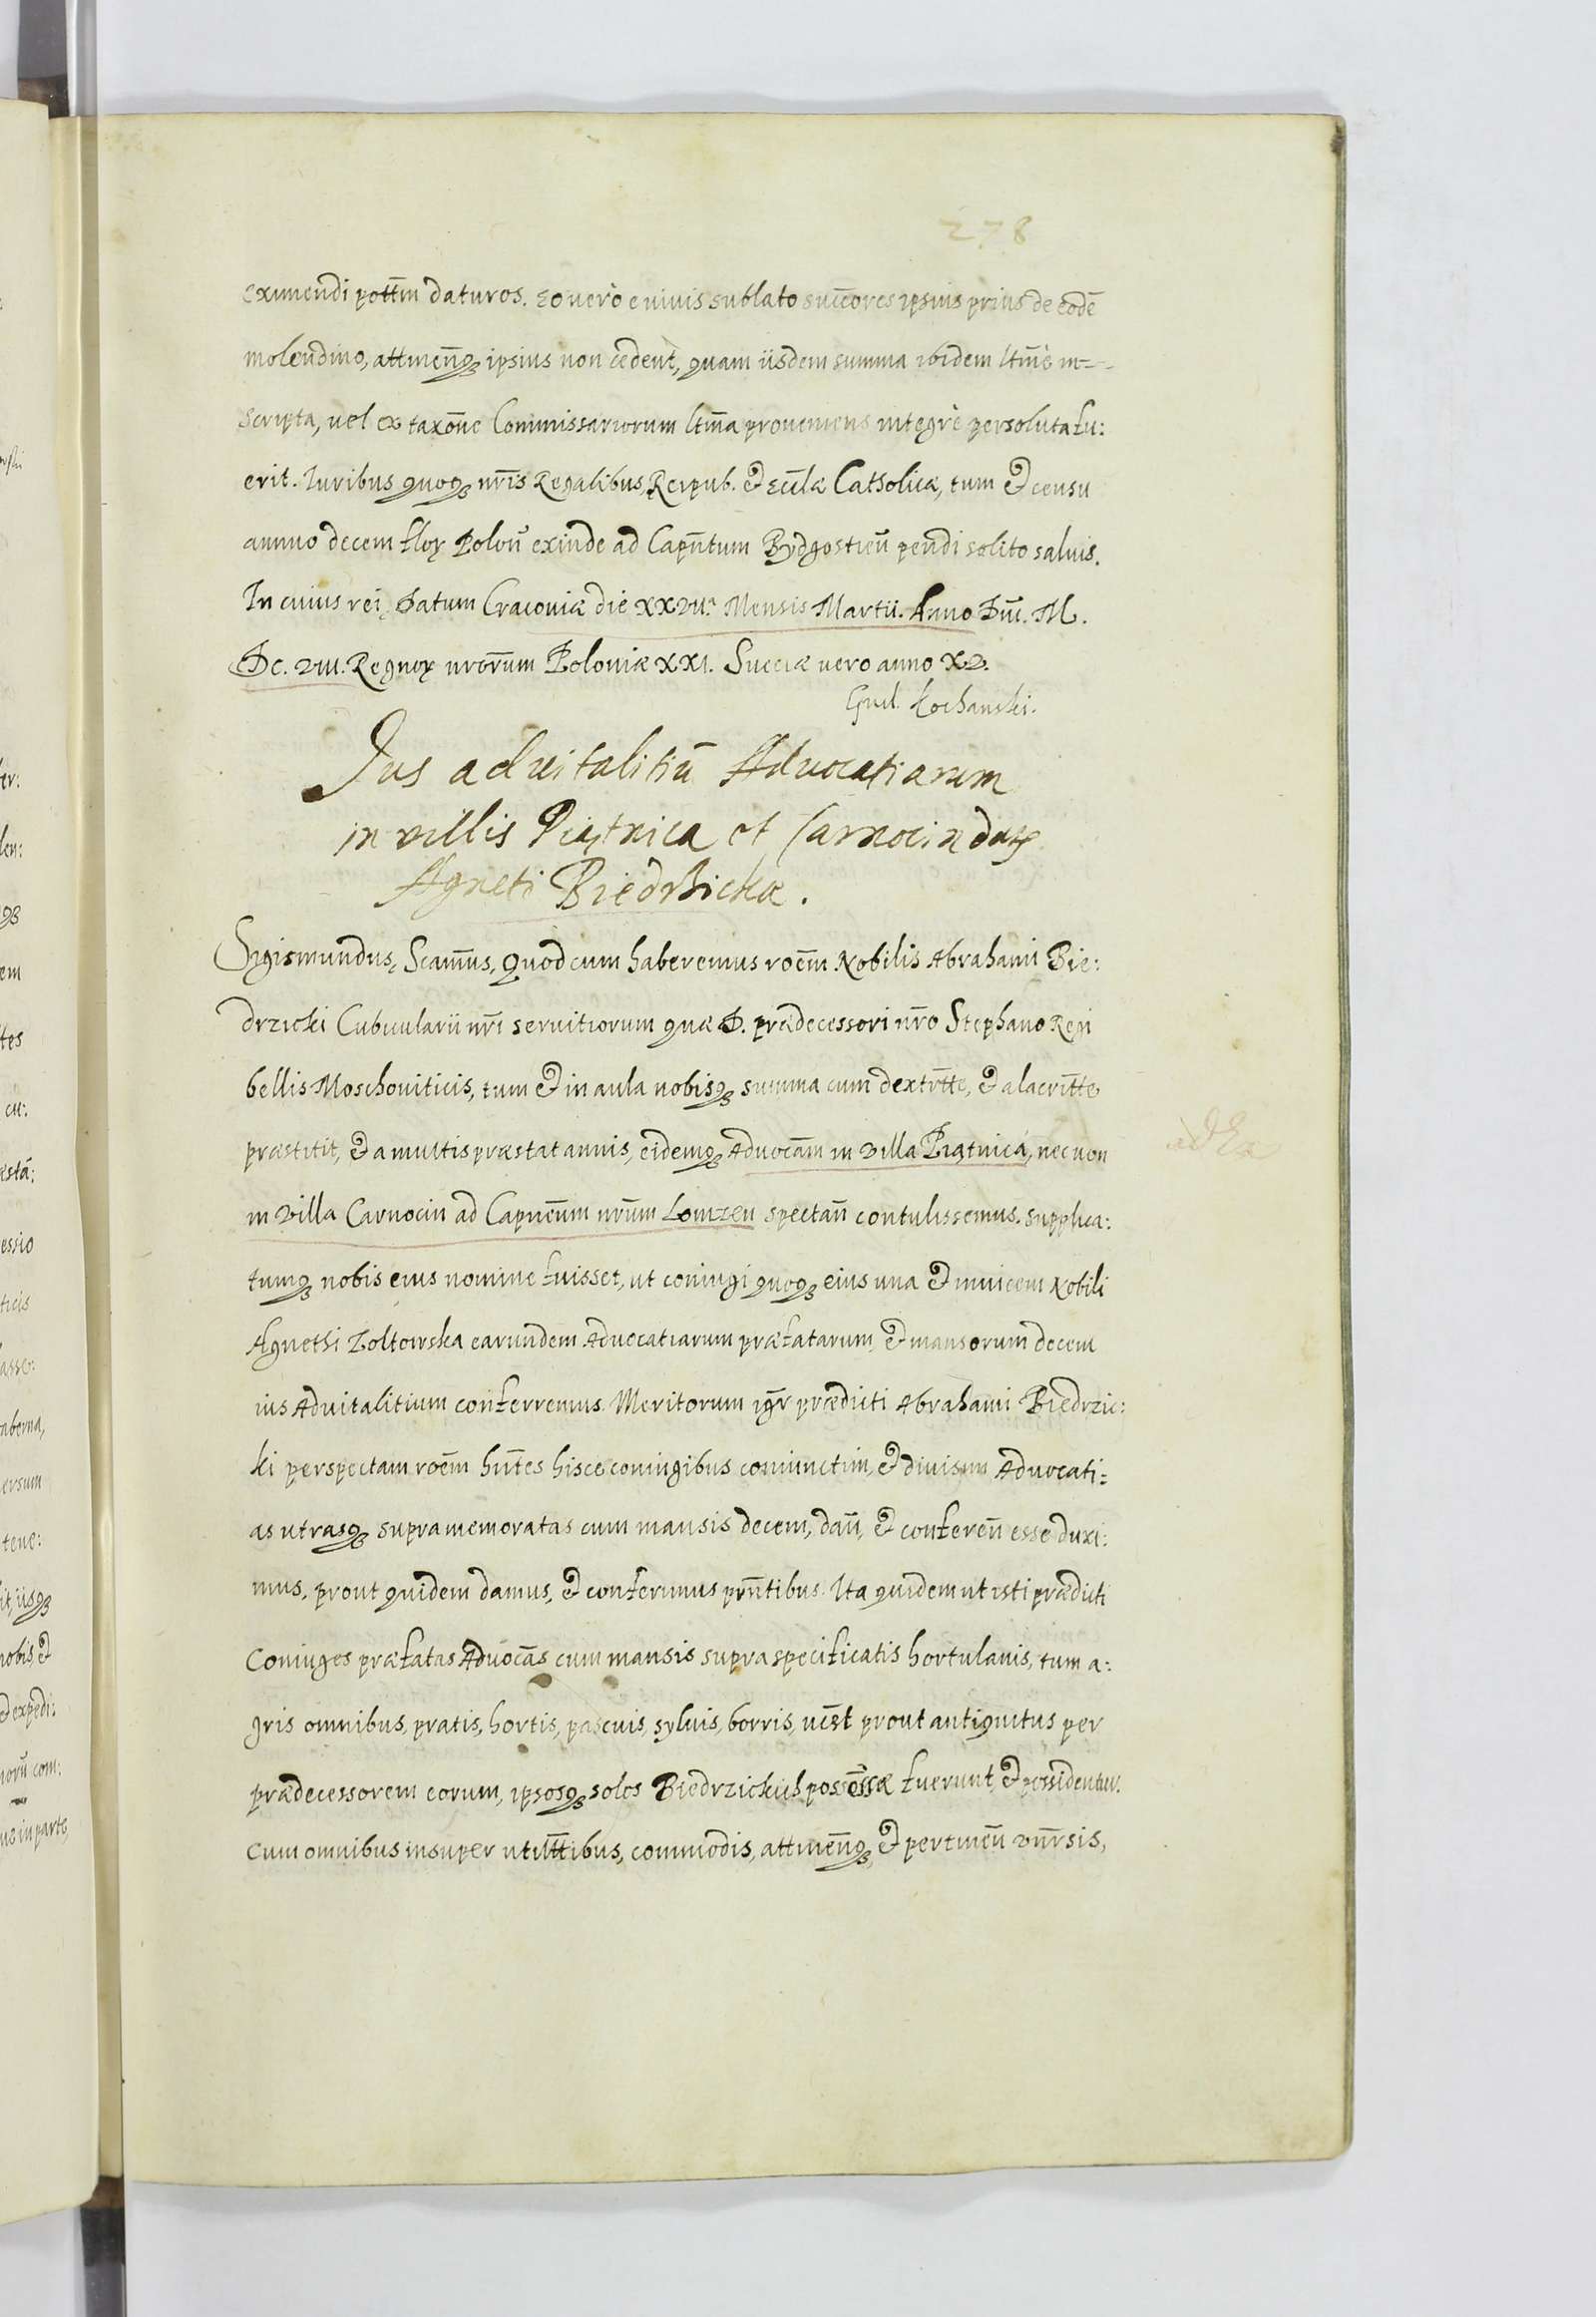 278
eximendi pottm̄ daturos. Eo verò e vivis sublato succores ipsius prius de eodē
molendino, attineñq₃ ipsius non cedent, quam iisdem summa ibidem ltm̄e in-
scripta, vel ex taxone Commissariorum ltm̄a proveniens integrè persoluta fu:
erit. Iuribus quoq₃ nr̄is Regalibus, Reipub. & Eccl̄æ Catholicæ, tum & censu
annuo decem floꝝ Poloñ exinde ad Capn̄tum Bydgostieñ pendi solito salvis.
In cuius rei, Datum Cracoviæ die XXVII. Mensis Martii. Anno Dni. M.
DC. VIII. Regnoꝝ nrōrum Poloniæ XXI. Sueciæ vero anno XV.
Kochanski.
Jus advitalitiū Advocatiarum
in villis Piątnica et Carnocin datꝫ
Agneti Biedrzickæ.
Sigismundus, Scamūs, Quod cum haberemus roēm Nobilis Abrahami Bie:
drzicki Cubicularii nr̄i servitiorum quæ D. prædecessori nr̄o Stephano Regi
bellis Moschoviticis, tum & in aula nobisq₃ summa cum dextrtte, & alacritte
præstitit, & a multis præstat annis, eidemq₃ Advocām in villa Piątnica, necnon
in villa Carnocin ad Capneūm nrūm Lomzeñ spectañ contulissemus. Supplica:
tumq₃ nobis eius nomine fuisset, ut coniugi quoq₃ eius una & invicem Nobili
Agnethi Zoltowska earundem Advocatiarum præfatarum, & mansorum decem
ius Advitalitium conferremus. Meritorum igr̄ prædicti Abrahami Biedrzic:
ki perspectam roēm hn̄tes hisce coniugibus coniunctim, & divisim Advocati=
as utrasq₃ supramemoratas cum mansis decem, dañ, & confereñ esse duxi:
mus, prout quidem damus, & conferimus prn̄tibus. Ita quidem ut isti prædicti
Coniuges præfatas Advocās cum mansis supraspecificatis hortulanis, tum a:
gris omnibus, pratis, hortis, pascuis, sylvis, borris, prout antiquitus per
prædecessorem eorum, ipsosq₃ solos Biedrzickich possessæ fuerunt, & possidentur.
Cum omnibus insuper utilttibus, commodis, attineñq₃, & pertineñ vnr̄sis,